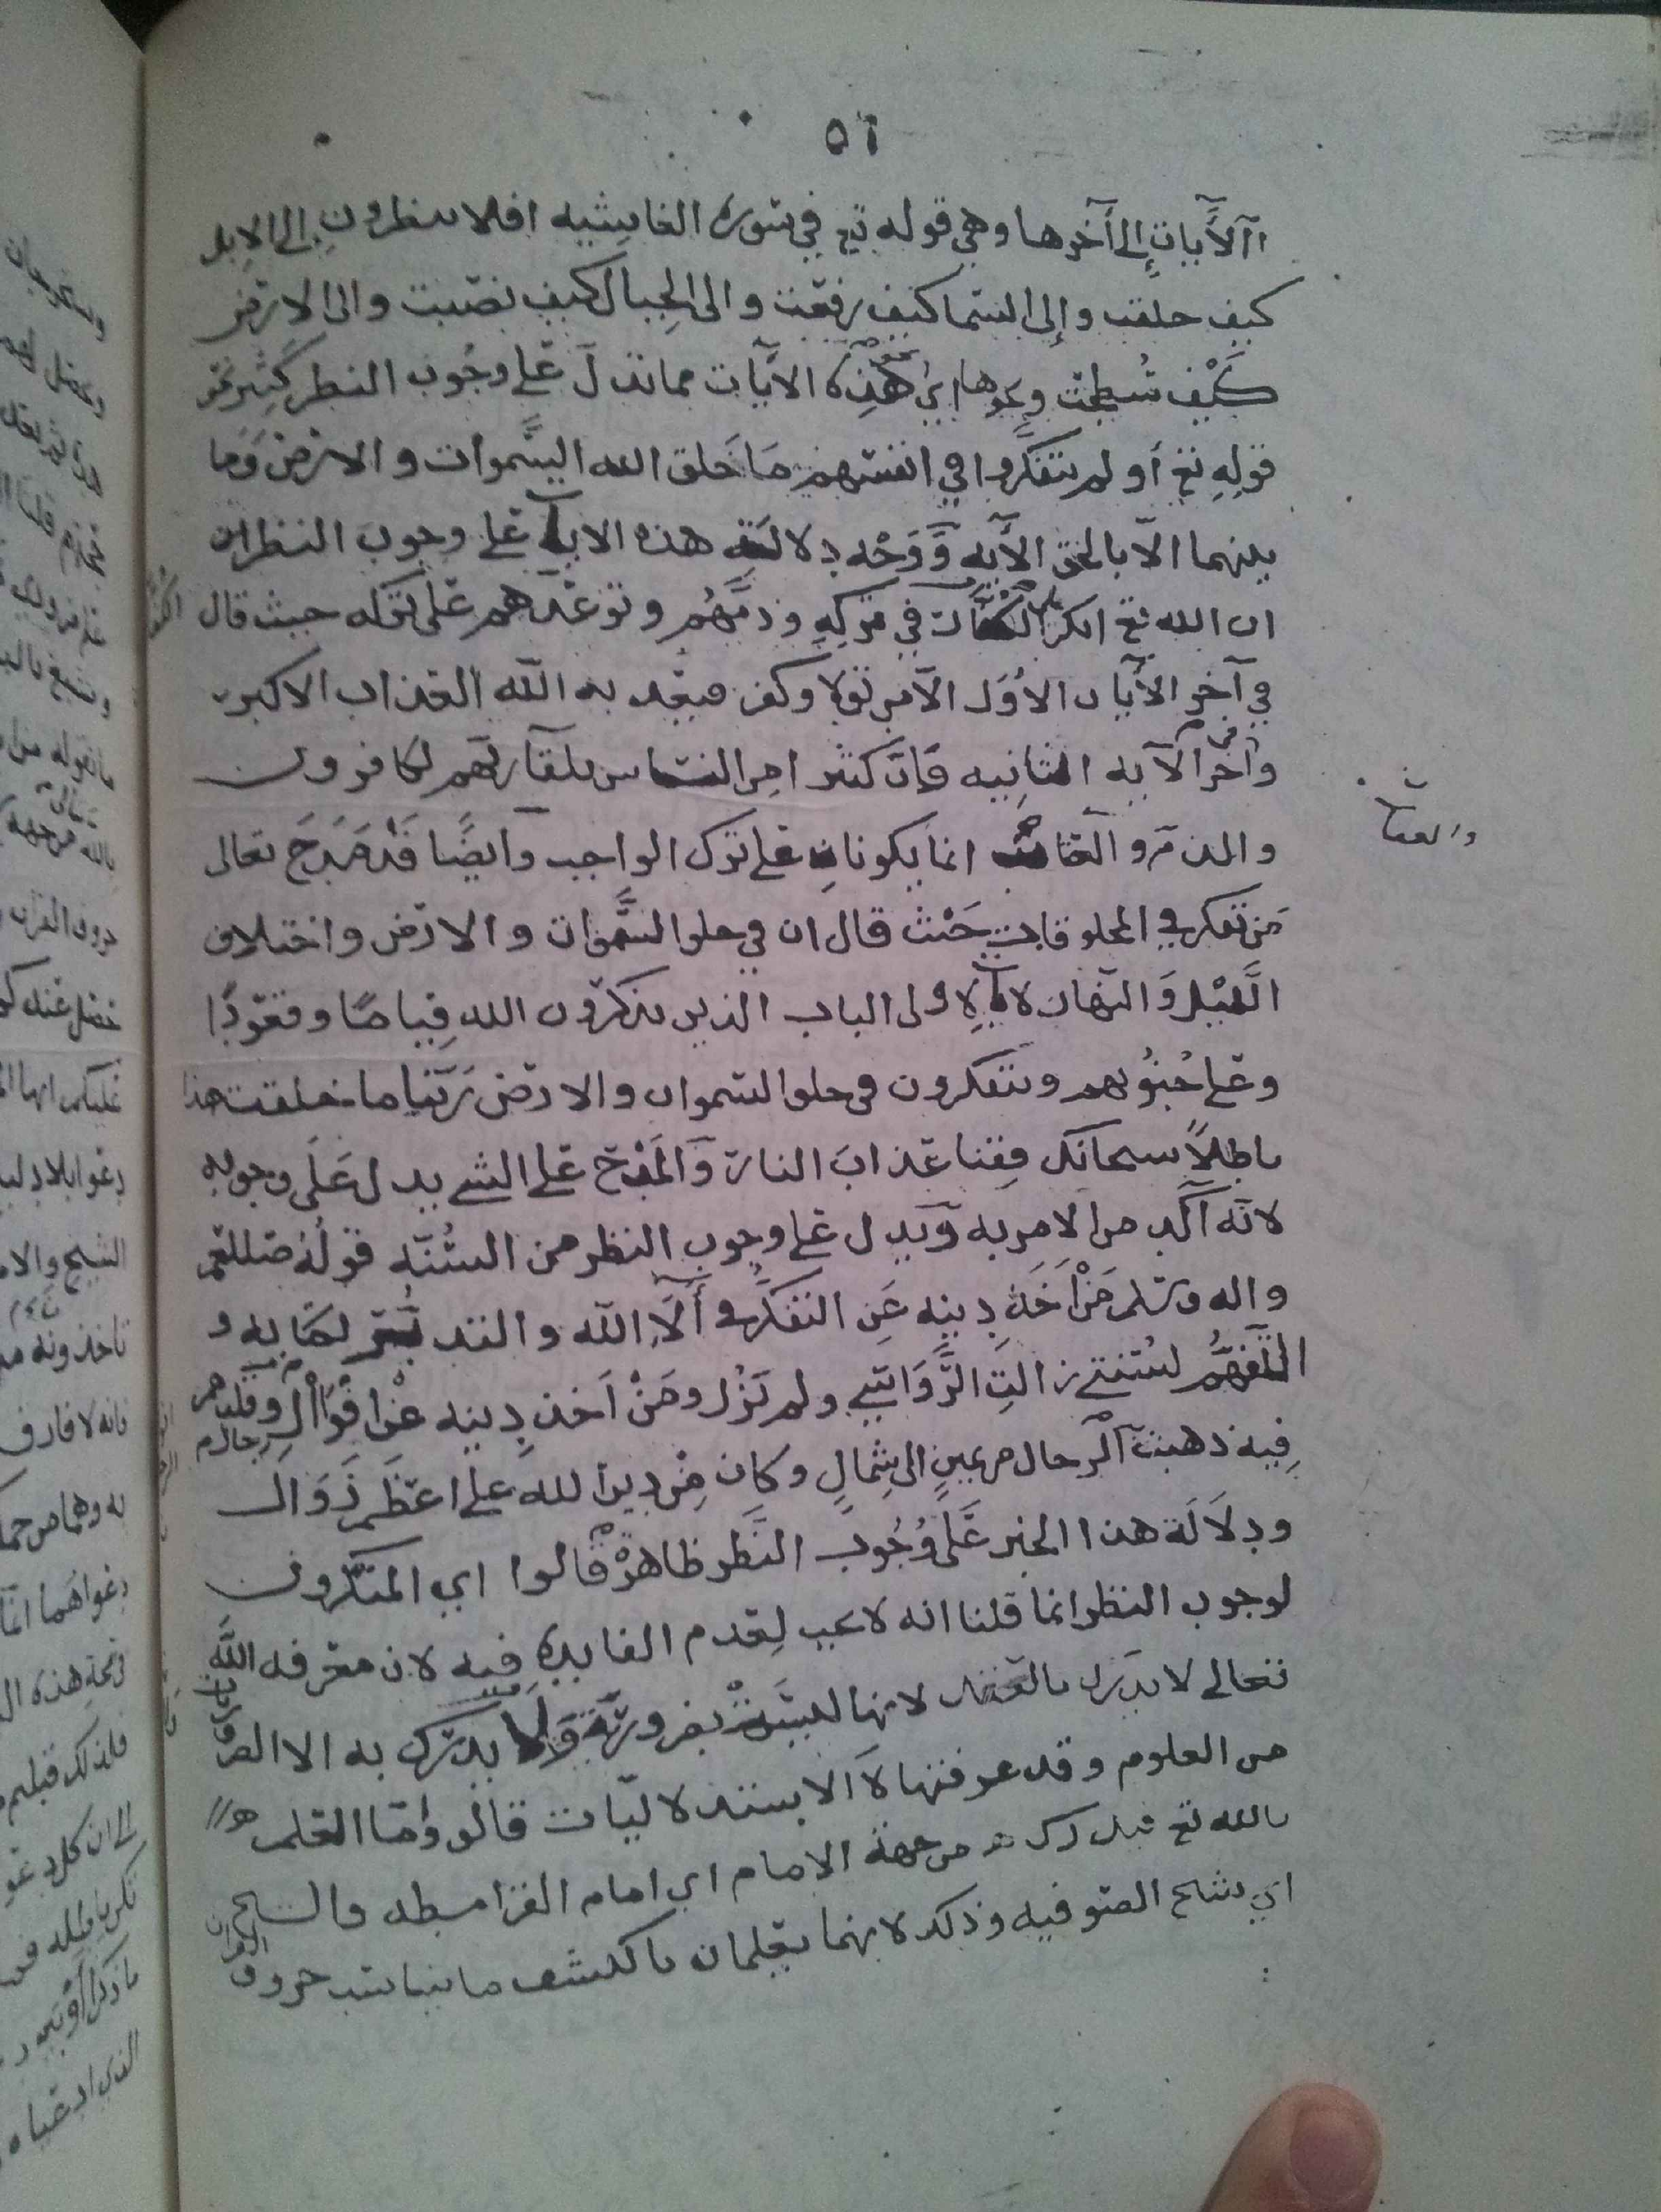 ٥٦
الآيات إلى آخرها وهي قوله تع في سورة الغاشيه افلا ينظرون إلى الابل
كيف خلقت وإلى السما كيف رفعت والى الجبال كيف نصبت والى الارض
كيف سطحت ونحوها اي نحو هذه الآيات مما تدل على وجوب النظر كثير نحو
قوله تع أو لم يتفكروا في انفسهم ما خلق الله السموات والارض وما
بينهما الا بالحق الآيه ووجه دلالة هذه الايات على وجوب النظر
ان الله تع انكر على الكفار في تركه وذمهم وتوعدهم على تركه حيث قال
في آخر الآيات الأول الا من تولا وكفر فيعذبه الله العذاب الاكبر
وفي آخر الآيه الثانيه فان كثيرا من الناس بلقآء ربهم لكافرون
والذم والعقاب انما يكونان على ترك الواجب وايضًا قد مدح تعالى
من تفكر في المخلوقات حيث قال ان في خلق السموات والارض واختلاف
الليل والنهار لايات لاولى الباب الذين يذكرون الله قياما وقعودًا
وعلى جنوبهم ويتفكرون في خلق السموات والارض ربنا ما خلقت هذا
باطلاً سبحانك فقنا عذاب النار والمدح على الشي يدل على وجوبه
لانه آكد من الامر به ويدل على وجوب النظر من السنه قوله صلى الله عليه
واله وسلم من أخذ دينه عن التفكر في ألآء الله والتدبر لكتابه و
التفهم لسنتي زالت الرواسي ولم يزل ومن اخذ دينه عن افواه الرجال وقلدهم
فيه ذهبت به الرجال من يمين الى شمال وكان من دين الله على اعظم زوال
ودلالة هذا الخبر على وجوب النظر ظاهرة قالوا اي المنكرون
لوجوب النظر انما قلنا انه لا يجب لعدم الفايده فيه لان معرفه الله
تعالى لا تدرك بالعقل لانها ليست بضرورية ولا يدرك به الا الضروريات
من العلوم وقد عرفتها الا بستدلاليات قالوا وامّا العلم
بالله تع من جهة الامام اي امام القرامطه والشيخ
اي شيخ الصوفيه وذلك لانهما يعلمان بالكشف ما يناسب حروف القران
والعقاب